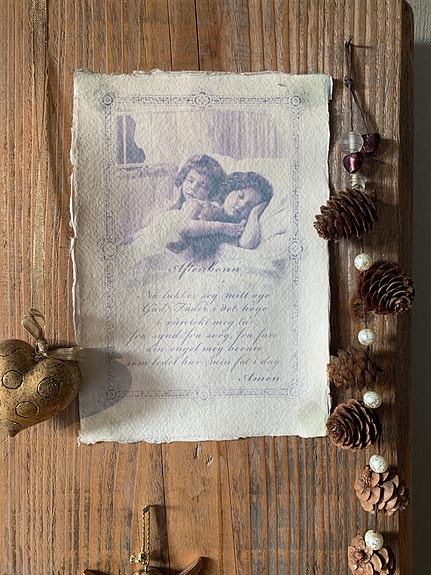 Aftenbønn
Nå lukker seg mitt øye
Gud, Fader i det høye
i varetekt meg ta
fra synd, fra sorg, fra fare
din engel meg bevare
som ledet har min fot i dag
Amen